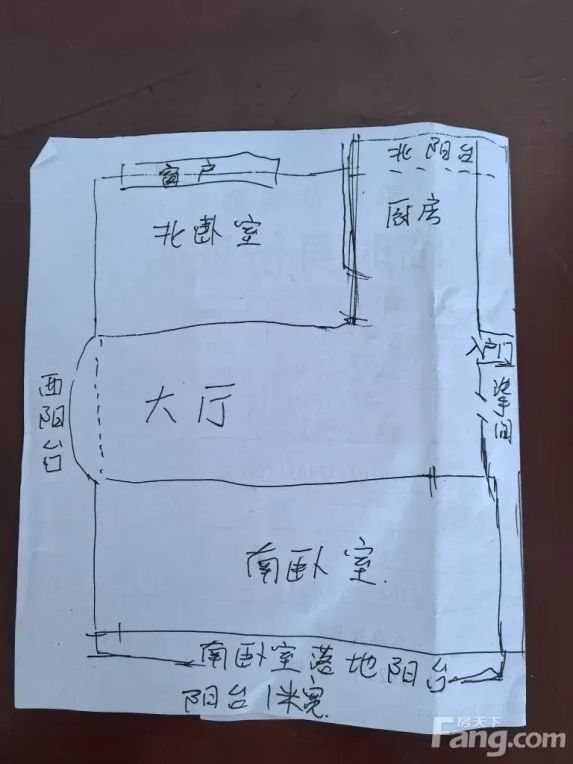 北阳台
窗户
厨房
北卧室
入户门
西阳台
大厅
南卧室
南卧室落地阳台
阳台1米宽
房天下
Fang.com